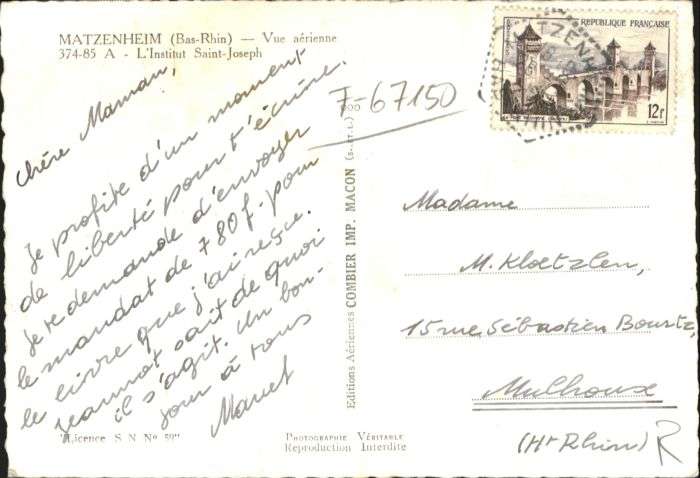 MATZENHEIM (Bas-Rhin) — Vue aérienne
374-85 A - L'Institut Saint-Joseph
Chère Maman,
Je profite d'un moment
de liberté pour t'écrire.
Je te demande d'envoyer
le mandat de 780f. pour
le livre que j'ai reçu.
Jeannot sait de quoi
il s'agit. Un bon-
jour à tous
Marcel
Licence S N Nº 59"
7-67150
Editions Aériennes COMBIER IMP. MACON (S.-et-L.)
PHOTOGRAPHIE VÉRITABLE
Reproduction Interdite
REPUBLIQUE FRANÇAISE
12f
Madame
M. Kloetzlen,
15 rue Sébastien Bourtz,
Mulhouse
(Ht Rhin) R